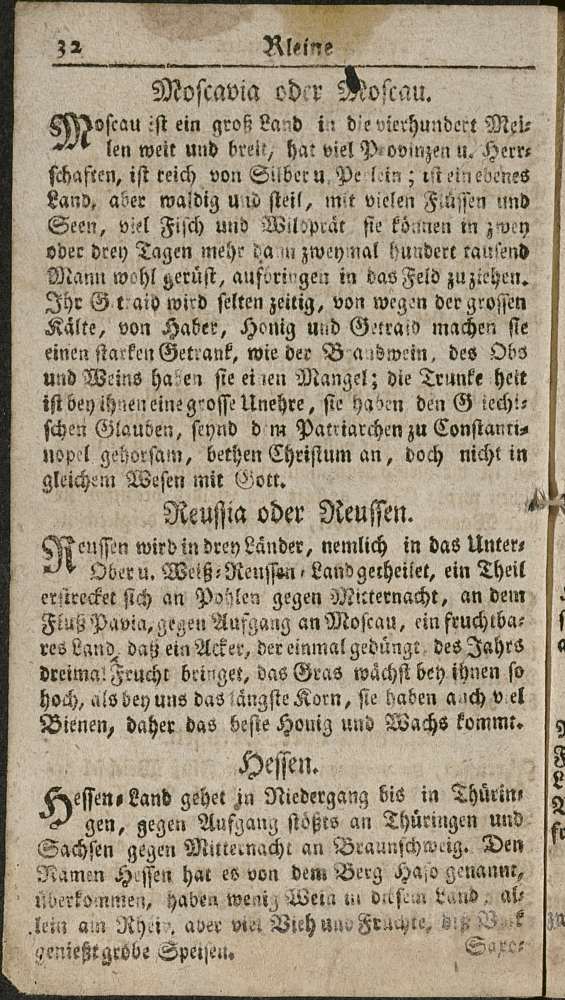 32 Kleine
Moscavia oder Moscau.
Moscau ist ein groß Land in die vierhundert Mei-
len weit und breit, hat viel Provinzen u. Herr-
schaften, ist reich von Silber u. Perlein; ist ein ebenes
Land, aber waldig und steil, mit vielen Flüssen und
Seen, viel Fisch und Wildprät sie können in zwey
oder drey Tagen mehr dann zweymal hundert tausend
Mann wohl gerüst, aufbringen in das Feld zu ziehen.
Ihr Getraid wird selten zeitig, von wegen der grossen
Kälte, von Haber, Honig und Getraid machen sie
einen starken Getrank, wie der Brandwein, des Obs
und Weins haben sie einen Mangel; die Trunkenheit
ist bey ihnen eine grosse Unehre, sie haben den Griechi-
schen Glauben, seynd dem Patriarchen zu Constanti-
nopel gehorsam, bethen Christum an, doch nicht in
gleichem Wesen mit Gott.
Reussia oder Reussen.
Reussen wird in drey Länder, nemlich in das Unter-
Ober u. Weiß-Reussen-Land getheilet, ein Theil
erstrecket sich an Pohlen gegen Mitternacht, an dem
Fluß Pavia, gegen Aufgang an Moscau, ein fruchtba-
res Land, daß ein Acker, der einmal gedüngt, des Jahrs
dreimal Frucht bringet, das Gras wächst bey ihnen so
hoch, als bey uns das längste Korn, sie haben auch viel
Bienen, daher das beste Honig und Wachs kommt.
Hessen.
Hessen-Land gehet in Niedergang bis in Thürin-
gen, gegen Aufgang stößts an Thüringen und
Sachsen gegen Mitternacht an Braunschweig. Den
Namen Hessen hat es von dem Berg Haso genannt,
überkommen, haben wenig Wein in diesem Land, al-
lein am Rhein, aber viel Vieh und Früchte, diß Volk
genießt grobe Speisen.
Saxo-